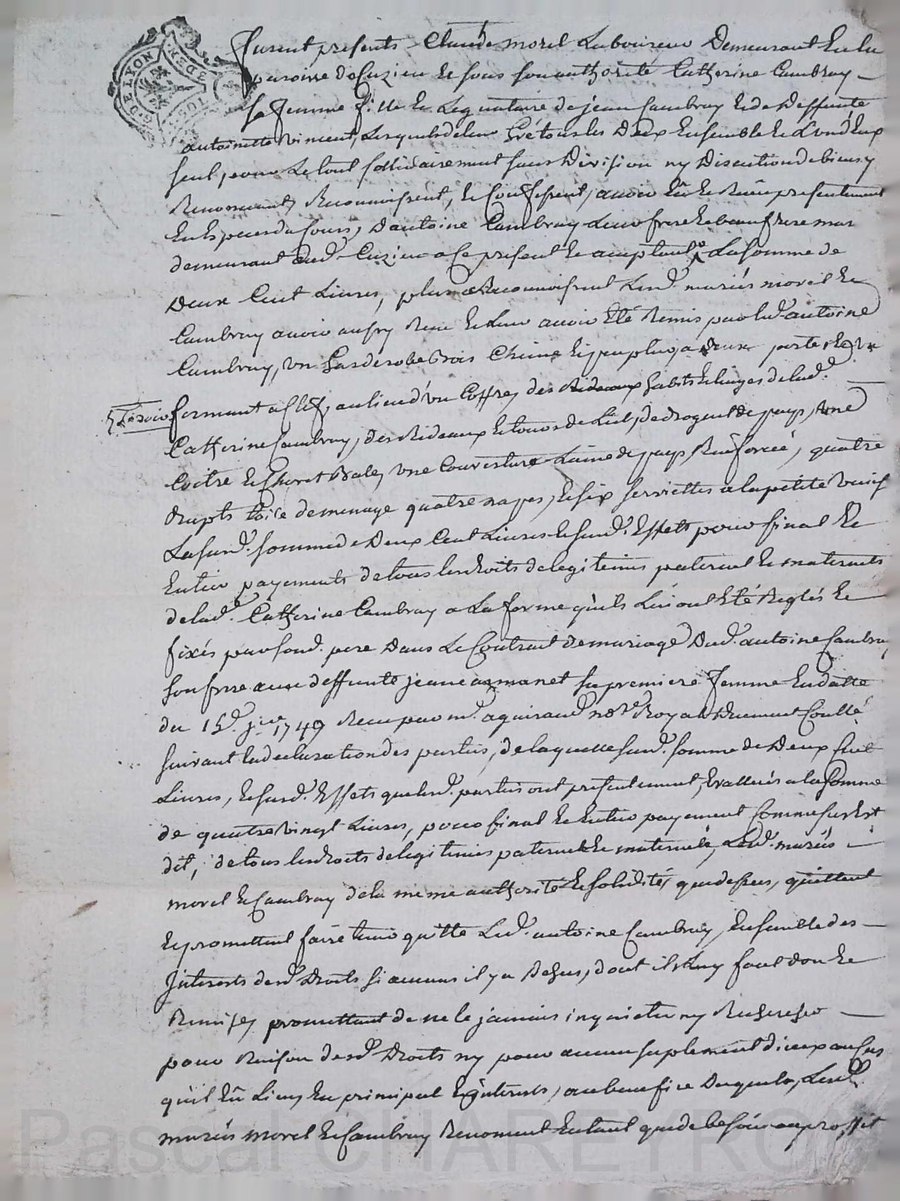 G. DE LYON
Furent presents Claude morel Laboureur Demeurant En la
paroisse de Cuzieu Et sous son authorité Catherine Cambray
sa femme fille Et Legataire de jean Cambray Et de deffunte
antoinette vincent, Lesquels de leur Gré tous les Deux Ensemble Et L'un d'Eux
seul, pour Le tout sollidairement sans Division ny Discution de biens y
Renonceant, Reconnoissent, Et Confessent, avoir Eû Et Reçu presentement
En Especes du Cours, D'antoine Cambray Leur frere Et beaufrere
demeurant aud. Cuzieu a Ce present Et acceptant La somme de
Deux Cent Livres, plus Reconnoissent Lesd. mariés morel Et
Cambray avoir aussy Reçu Et Leur avoir Eté Remis par led. antoine
Cambray, un Garderobe bois Chêne Et à Deux portes
fermant a Clef, au lieu d'un Coffre, des habits Et linges de lad.
Catherine Cambray, des Rideaux Et tours de Lit, de droguet de pays, une
Coitre Et Chevet Bale, une Couverture Laine de pays Renforcée, quatre
draps toile de menage quatre napes, Et six serviettes a la petite venise
La susd. somme de Deux Cent Livres Et susd. Effets pour final Et
Entier payements de tous les droits de legitimes paternels Et maternels
de lad. Catherine Cambray a La forme qu'ils Lui ont Eté Reglés Et
fixés par sond. pere Dans Le Contrat de mariage Dud. antoine Cambray
son frere avec deffunte jeanne sa premiere femme En datte
du 1749 Recu par me. aguiraud nore. Royal Duement Collé
suivant la declaration des parties, de laquelle susd. somme de Deux Cent
Livres, Et susd. Effets que lesd. parties ont presentement Evallués a la somme
de quatre vingt Livres, pour final Et Entier payement Comme sus Est
dit, de tous les droits de legitimes paternels Et maternels, Lesd. mariés
morel Et Cambray de la même authorité Et solidité, que dessus, quittent
Et promettent faire tenir quitte Led. antoine Cambray, Ensemble des
Interests desd. Droits si aucuns il y a Dehus, dont ils Luy font don Et
Remises promettant de ne le jamais inquieter ny Rechercher
pour Raison desd. Droits ny pour aucun suplement d'iceux au Cas
qu'il Eû Lieu, En principal Et interests, au benefice Duquel, Lesd.
mariés morel Et Cambray Renoncent En tant que de besoin au profit
Pascal CHAREYRON